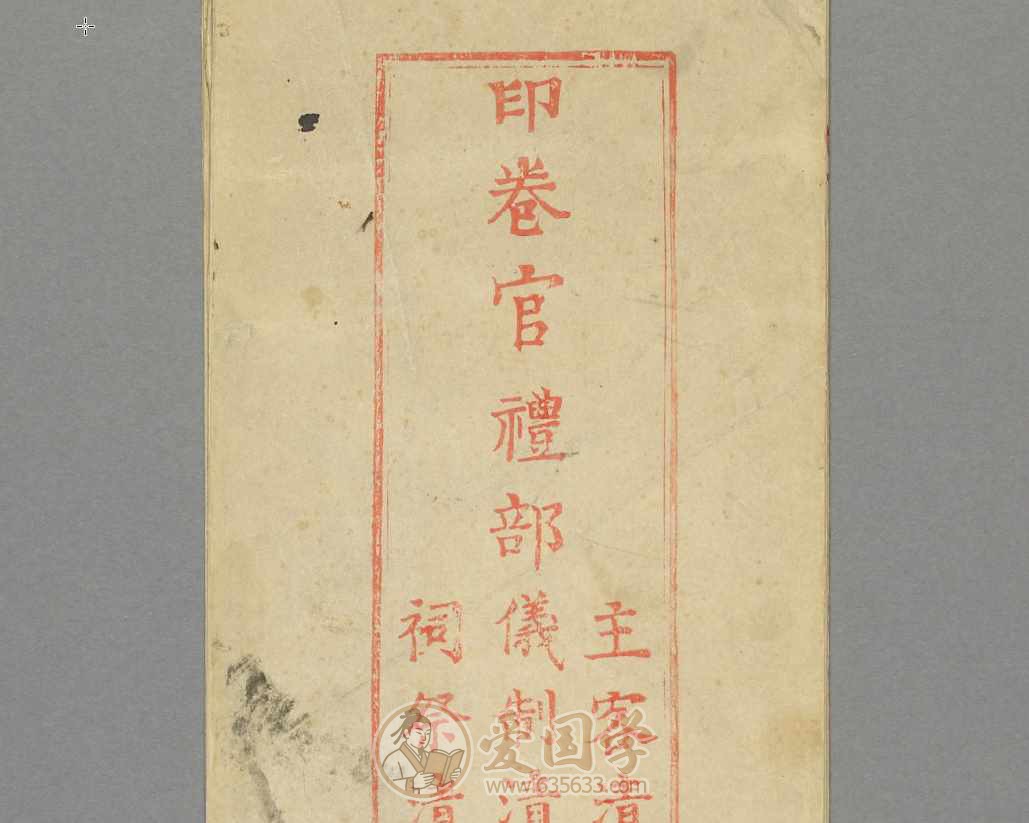 印卷官禮部儀制清
主客清
祠祭清
爱国学
www.635633.com